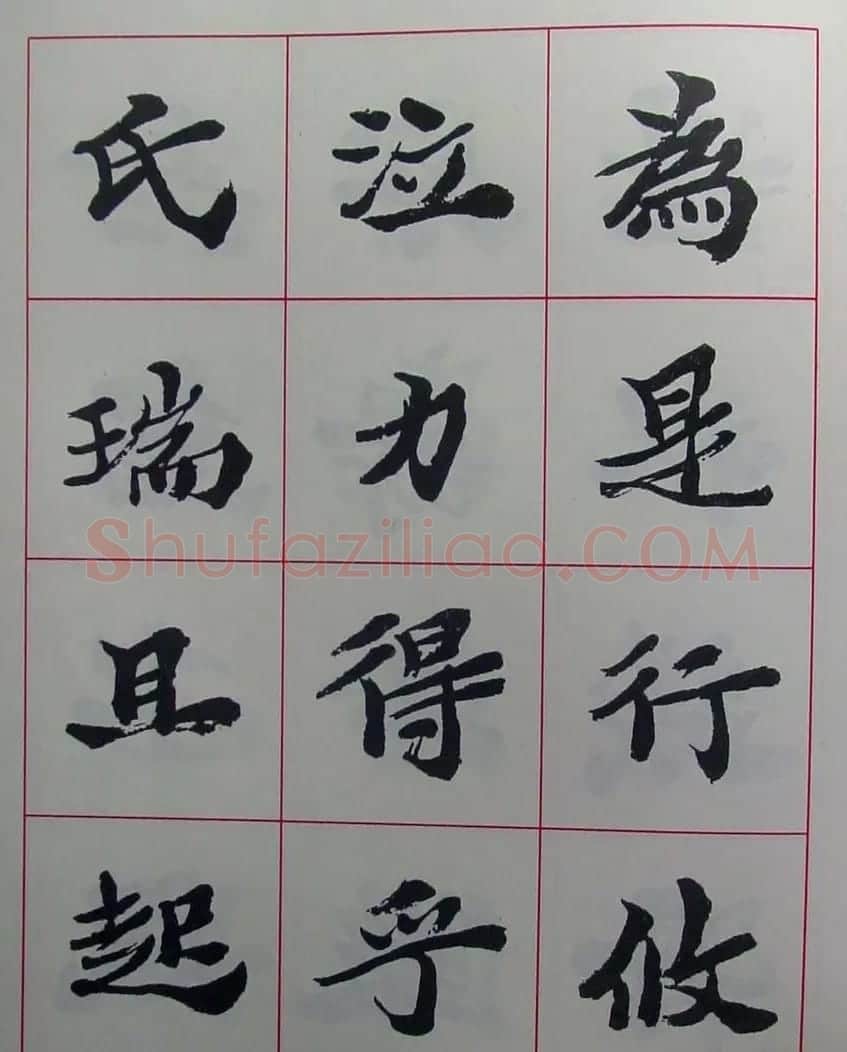 為是行攸
泣力得乎
氏瑞且起
Shufaziliao.COM